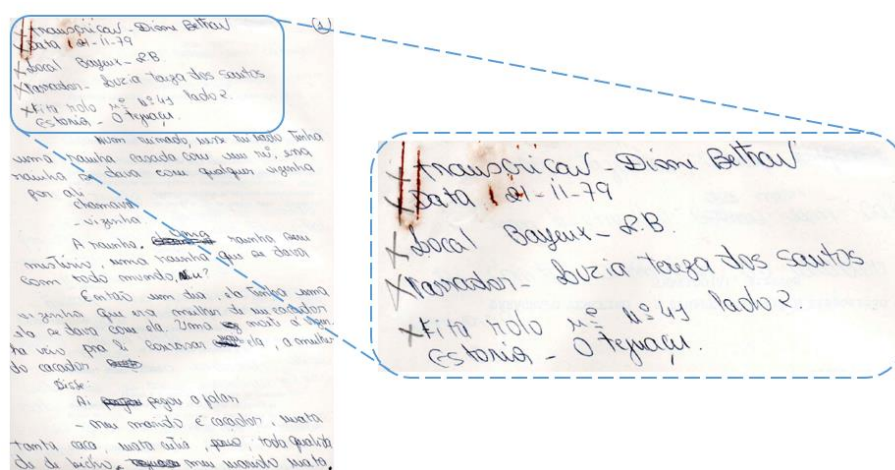 1
Transcriçaõ - Dione Beltraõ
Data 21-11-79
Local Bayeux - P.B.
Narrador - Luzia dos Santos
Fita rolo nº nº 41 lado 2.
Estoria - O Tejuaçu.
Num reinado, nesse reinado tinha
uma rainha casada com um rei, essa
rainha se dava com qualquer vizinha
por ali
chamava
- vizinha
A rainha, uma rainha sem
mistério, uma rainha que se dava
com todo mundo, né?
Então um dia, ela tinha uma
vizinha que era mulher de um caçador
ela se dava com ela. Uma noite a
veio pra lá conversar ela, a mulher
do caçador.
Disse:
Ai pegou a falar
- meu marido é caçador, mata
tanta caça, mata cutia, toda qualida
de de bicho, meu marido mata,
Transcriçaõ - Dione Beltraõ
Data 21-11-79
Local Bayeux - P.B.
Narrador - Luzia dos Santos
Fita rolo nº nº 41 lado 2.
Estoria - O Tejuaçu.